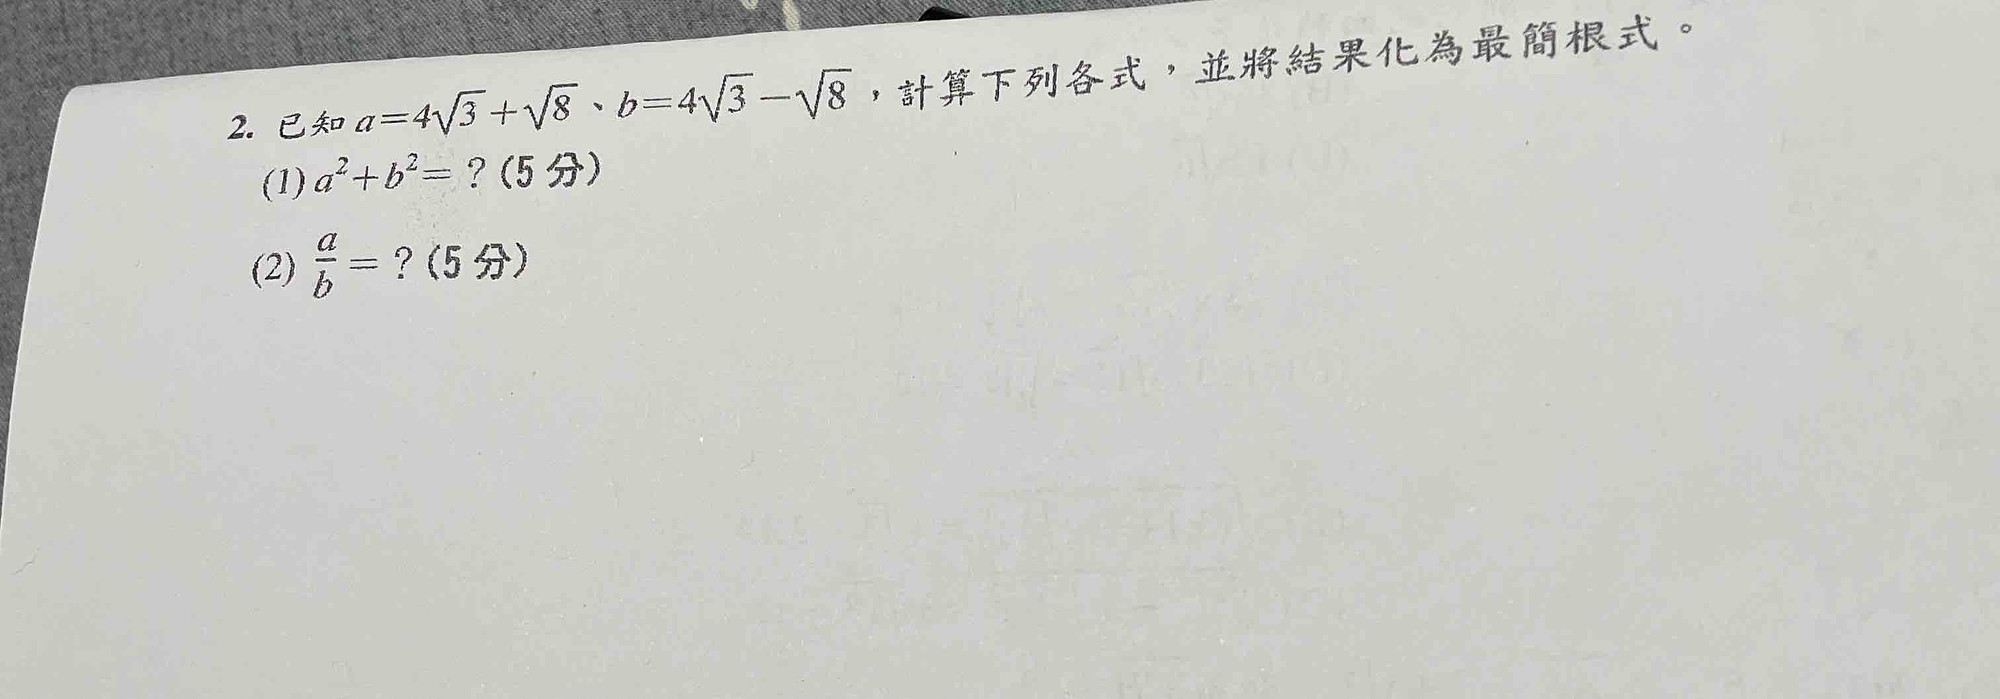 2. 已知 a=4√3+√8、b=4√3−√8,計算下列各式,並將結果化為最簡根式。
(1) a²+b²=?(5 分)
(2) a/b=?(5 分)